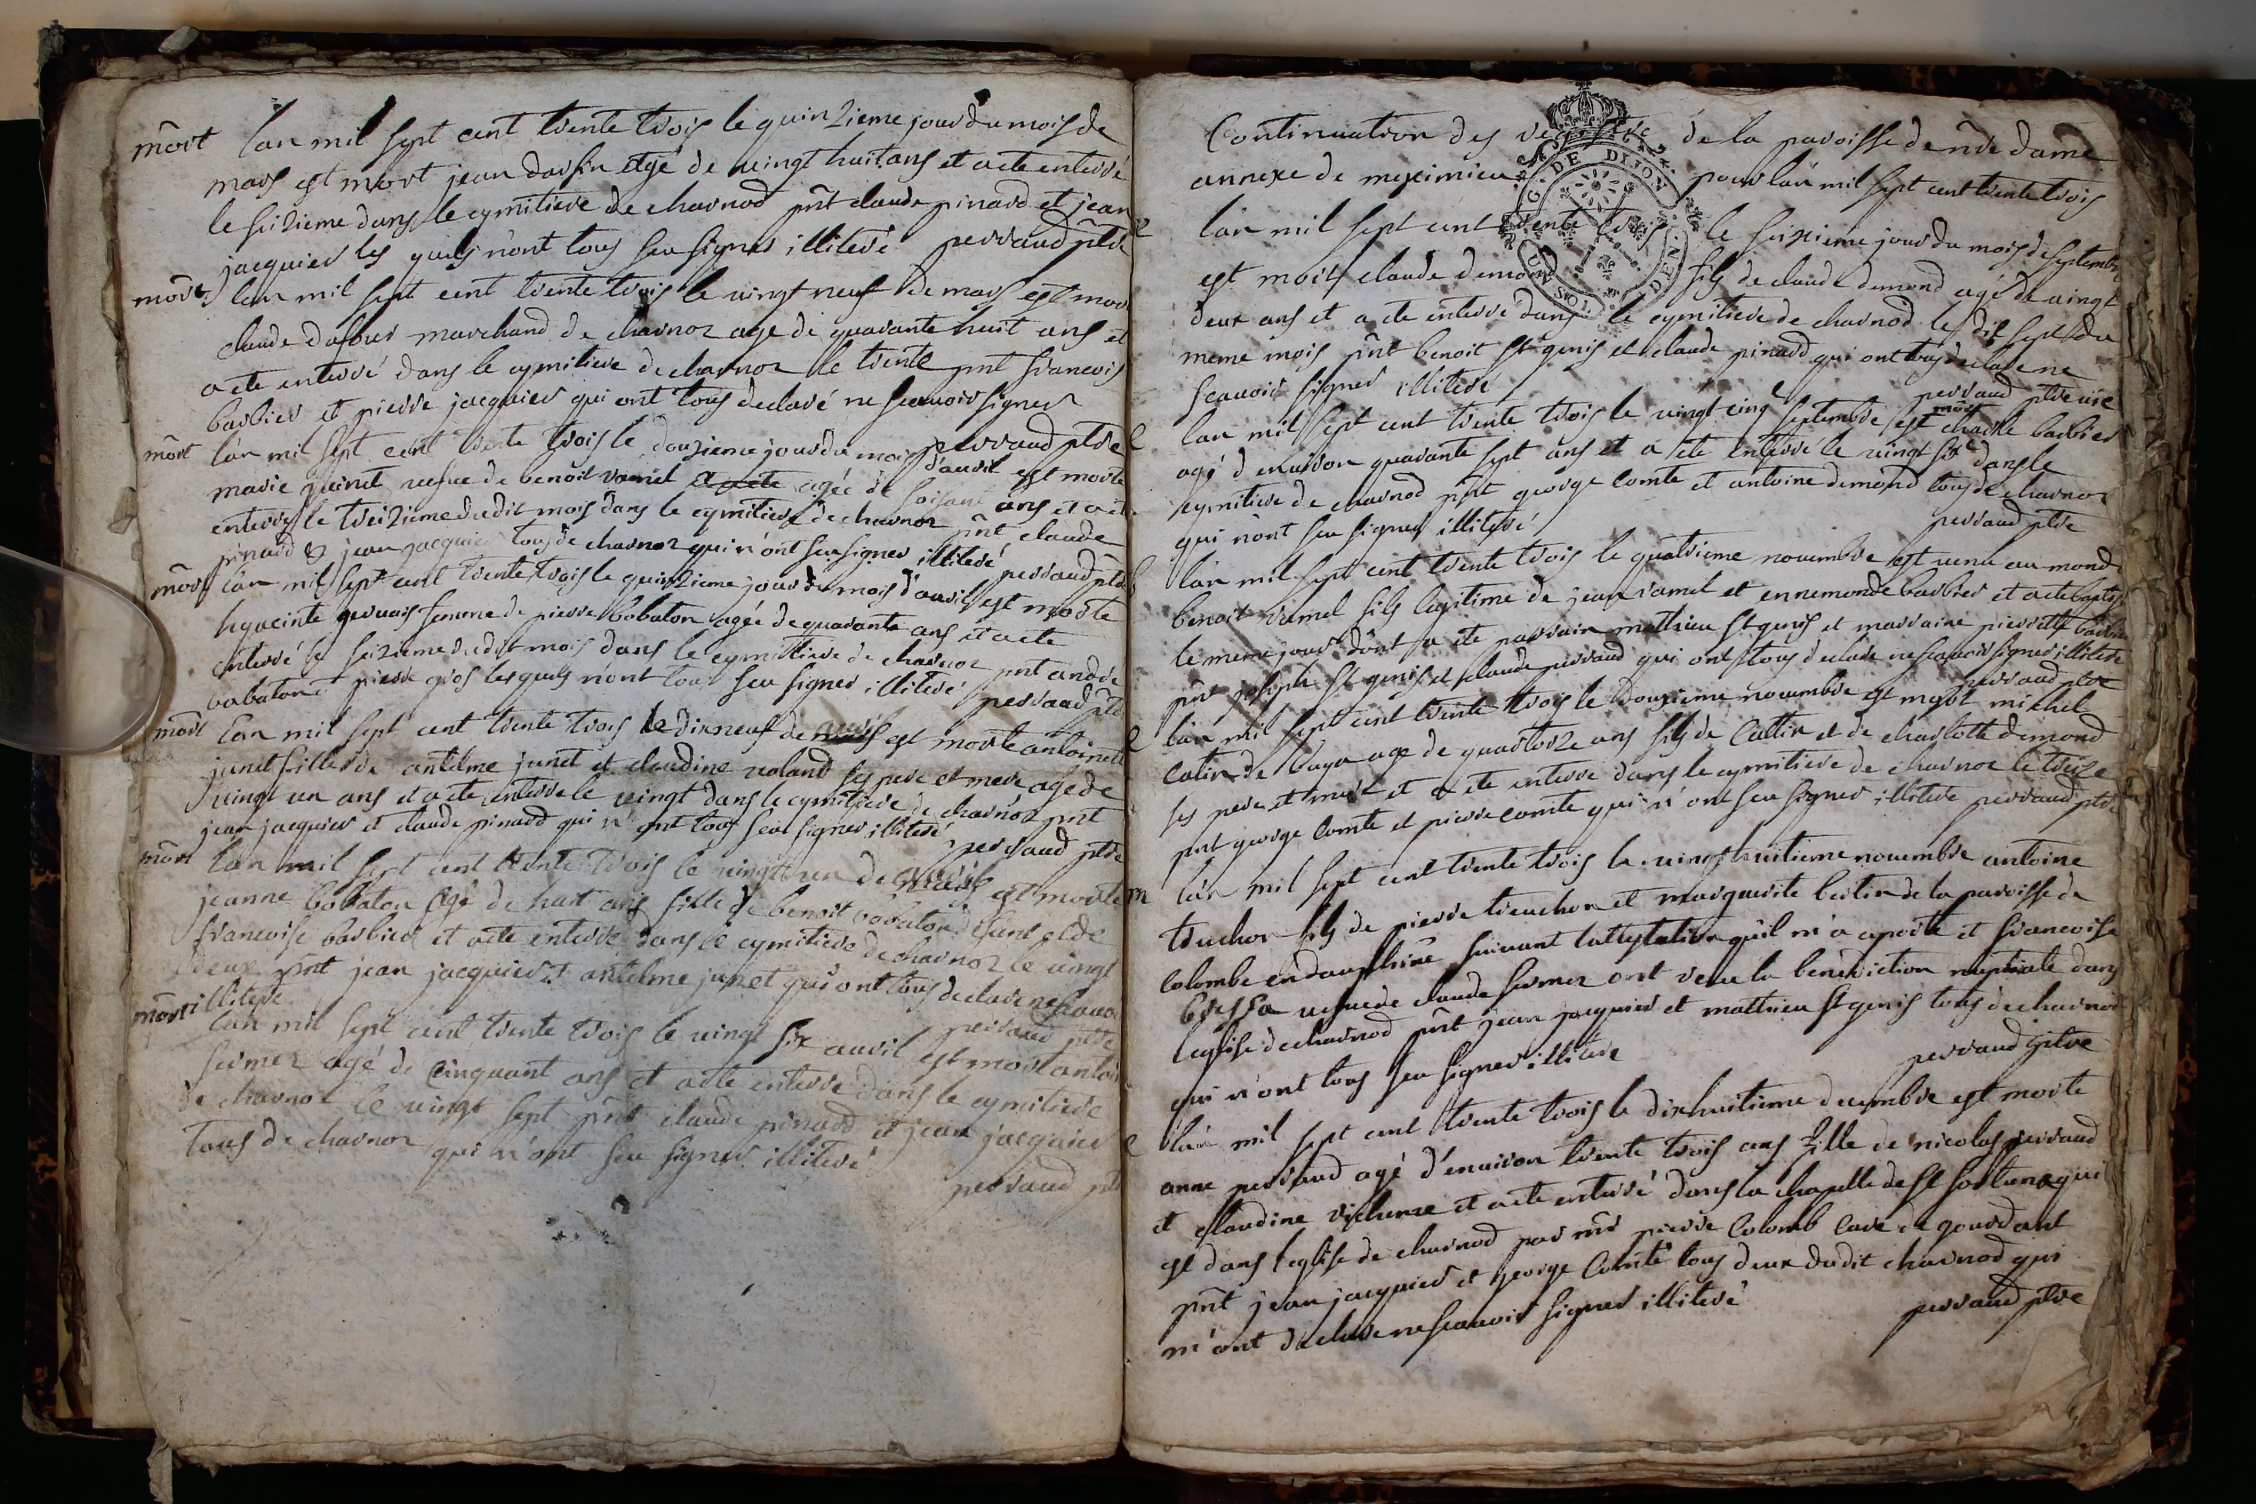 mort l'an mil sept cent trente trois le quinzieme jour du mois de
mars est mort jean dorfin agé de vingt huit ans et a ete enterré
le seizieme dans le cymitiere de charnod pnt claude pinard et jean
jacquier les quels n'ont tous seu signer illiteré perraud ptre
mort l'an mil sept cent trente trois le vingt neuf de mars est mort
claude marchand de charnoz agé de quarante huit ans et
a ete enterré dans le cymitiere de charnoz le trente pnt francois
barbier et pierre jacquier qui ont tous declaré ne scauoir signer
perraud ptre
mort l'an mil sept cent trente trois le douzieme jour du mois d'auril est morte
marie guinet vefue de benoit ramel agée de soisant ans et a eté
enterré le treizieme dudit mois dans le cymitiere de charnoz pnt claude
pinard & jean jacquier tous de charnoz qui n'ont seu signer illiteré perraud ptre
mort l'an mil sept cent trente trois le quinzieme jour du mois d'auril est morte
hyacinte geruais femme de pierre bobaton agée de quarante ans et a ete
enterré le seizieme dudit mois dans le cymitiere de charnoz pnt andre
bobaton et pierre gros lesquels n'ont tous seu signer illiteré perraud ptre
mort l'an mil sept cent trente trois le dixneuf de est morte antoinette
junet fille de antelme junet et claudine uoland ses pere et mere age de
vingt un ans et a ete enterré le vingt dans le cymitiere de charnoz pnt
jean jacquier et claude pinard qui n'ont tous seu signer illiteré
perraud ptre
mort l'an mil sept cent trente trois le vingt un de est morte
jeanne bobaton agé de huit ans fille de benoit bobaton et de
francoise barbier et a ete enterré dans le cymitiere de charnoz le vingt
deux pnt jean jacquier et antelme junet qui ont tous declaré ne scauoir
illiteré perraud ptre
mort l'an mil sept cent trente trois le vingt six auril est mort antoine
fermer agé de cinquant ans et a ete enterré dans le cymitiere
de charnoz le vingt sept pnt claude pinard et jean jacquier
tous de charnoz qui n'ont seu signer illiteré
perraud ptre
Continuation des registre de la paroisse de nre dame
annexe de meximieu pour l'an mil sept cent trente trois
G. DE DIJON
DEN.
l'an mil sept cent trente trois le seixieme jour du mois de septembre
est mort claude demond fils de claude demond agé de vingt
deux ans et a ete enterré dans le cymitiere de charnod le dix sept du
meme mois pnt benoit st genis et claude pinard qui ont tous declaré ne
scauoir signer illiteré perraud ptre vic
l'an mil sept cent trente trois le vingt cinq septembre est mort charle barbier
agé d'enuiron quarante sept ans et a ete enterré le vingt six dans le
cymitiere de charnod pnt george comte et antoine demond tous de charnoz
qui n'ont seu signer illiteré perraud ptre
l'an mil sept cent trente trois le quatrieme nouembre est venu au monde
benoit ramel fils legitime de jean ramel et ennemonde barbier et a ete baptisé
le meme jour dont a ete parrain mathieu st genis et marraine pierrette barbier
pnt joseph st genis et claude perraud qui ont tous declare ne scauoir signer illiteré
perraud ptre
l'an mil sept cent trente trois le douzieme nouembre est mort michel
catin de agé de quartorze ans fils de cattin et de charlotte demond
ses pere et mere et a ete enterré dans le cymitiere de charnoz le treize
pnt george comte et pierre comte qui n'ont seu signer illiteré perraud ptre
m l'an mil sept cent trente trois le vingt huitieme nouembre antoine
treuchon fils de pierre treuchon et marguerite bertin de la paroisse de
colombe en dauphiné suiuant l'attestation qu'il m'a aporté et francoise
veuue de claude fermer ont recu la benediction nuptiale dans
l'eglise de charnod pnt jean jacquier et mathieu st genis tous de charnod
qui n'ont tous seu signer illiteré perraud ptre
l'an mil sept cent trente trois le dixhuitieme decembre est morte
anne perraud agé d'enuiron trente trois ans fille de nicolas perraud
et claudine et a ete enterré dans la chapelle de st qui
est dans l'eglise de charnod par mre pierre colomb curé de gourdant
pnt jean jacquier et george comte tous deux dudit charnod qui
m'ont declaré ne scauoir signer illiteré perraud ptre